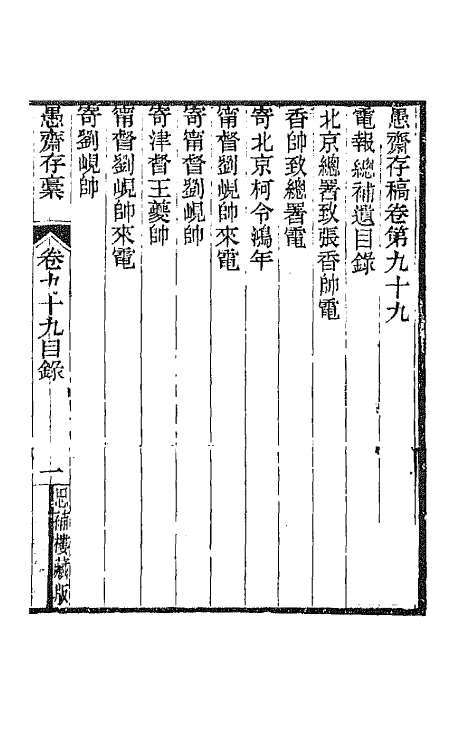 愚齋存稿卷第九十九
電報總補遺目錄
北京總署致張香帥電
香帥致總署電
寄北京柯令鴻年
甯督劉峴帥來電
寄甯督劉峴帥
寄津督王夔帥
甯督劉峴帥來電
寄劉峴帥
愚齋存稾
卷九十九目錄
一
思補樓藏版